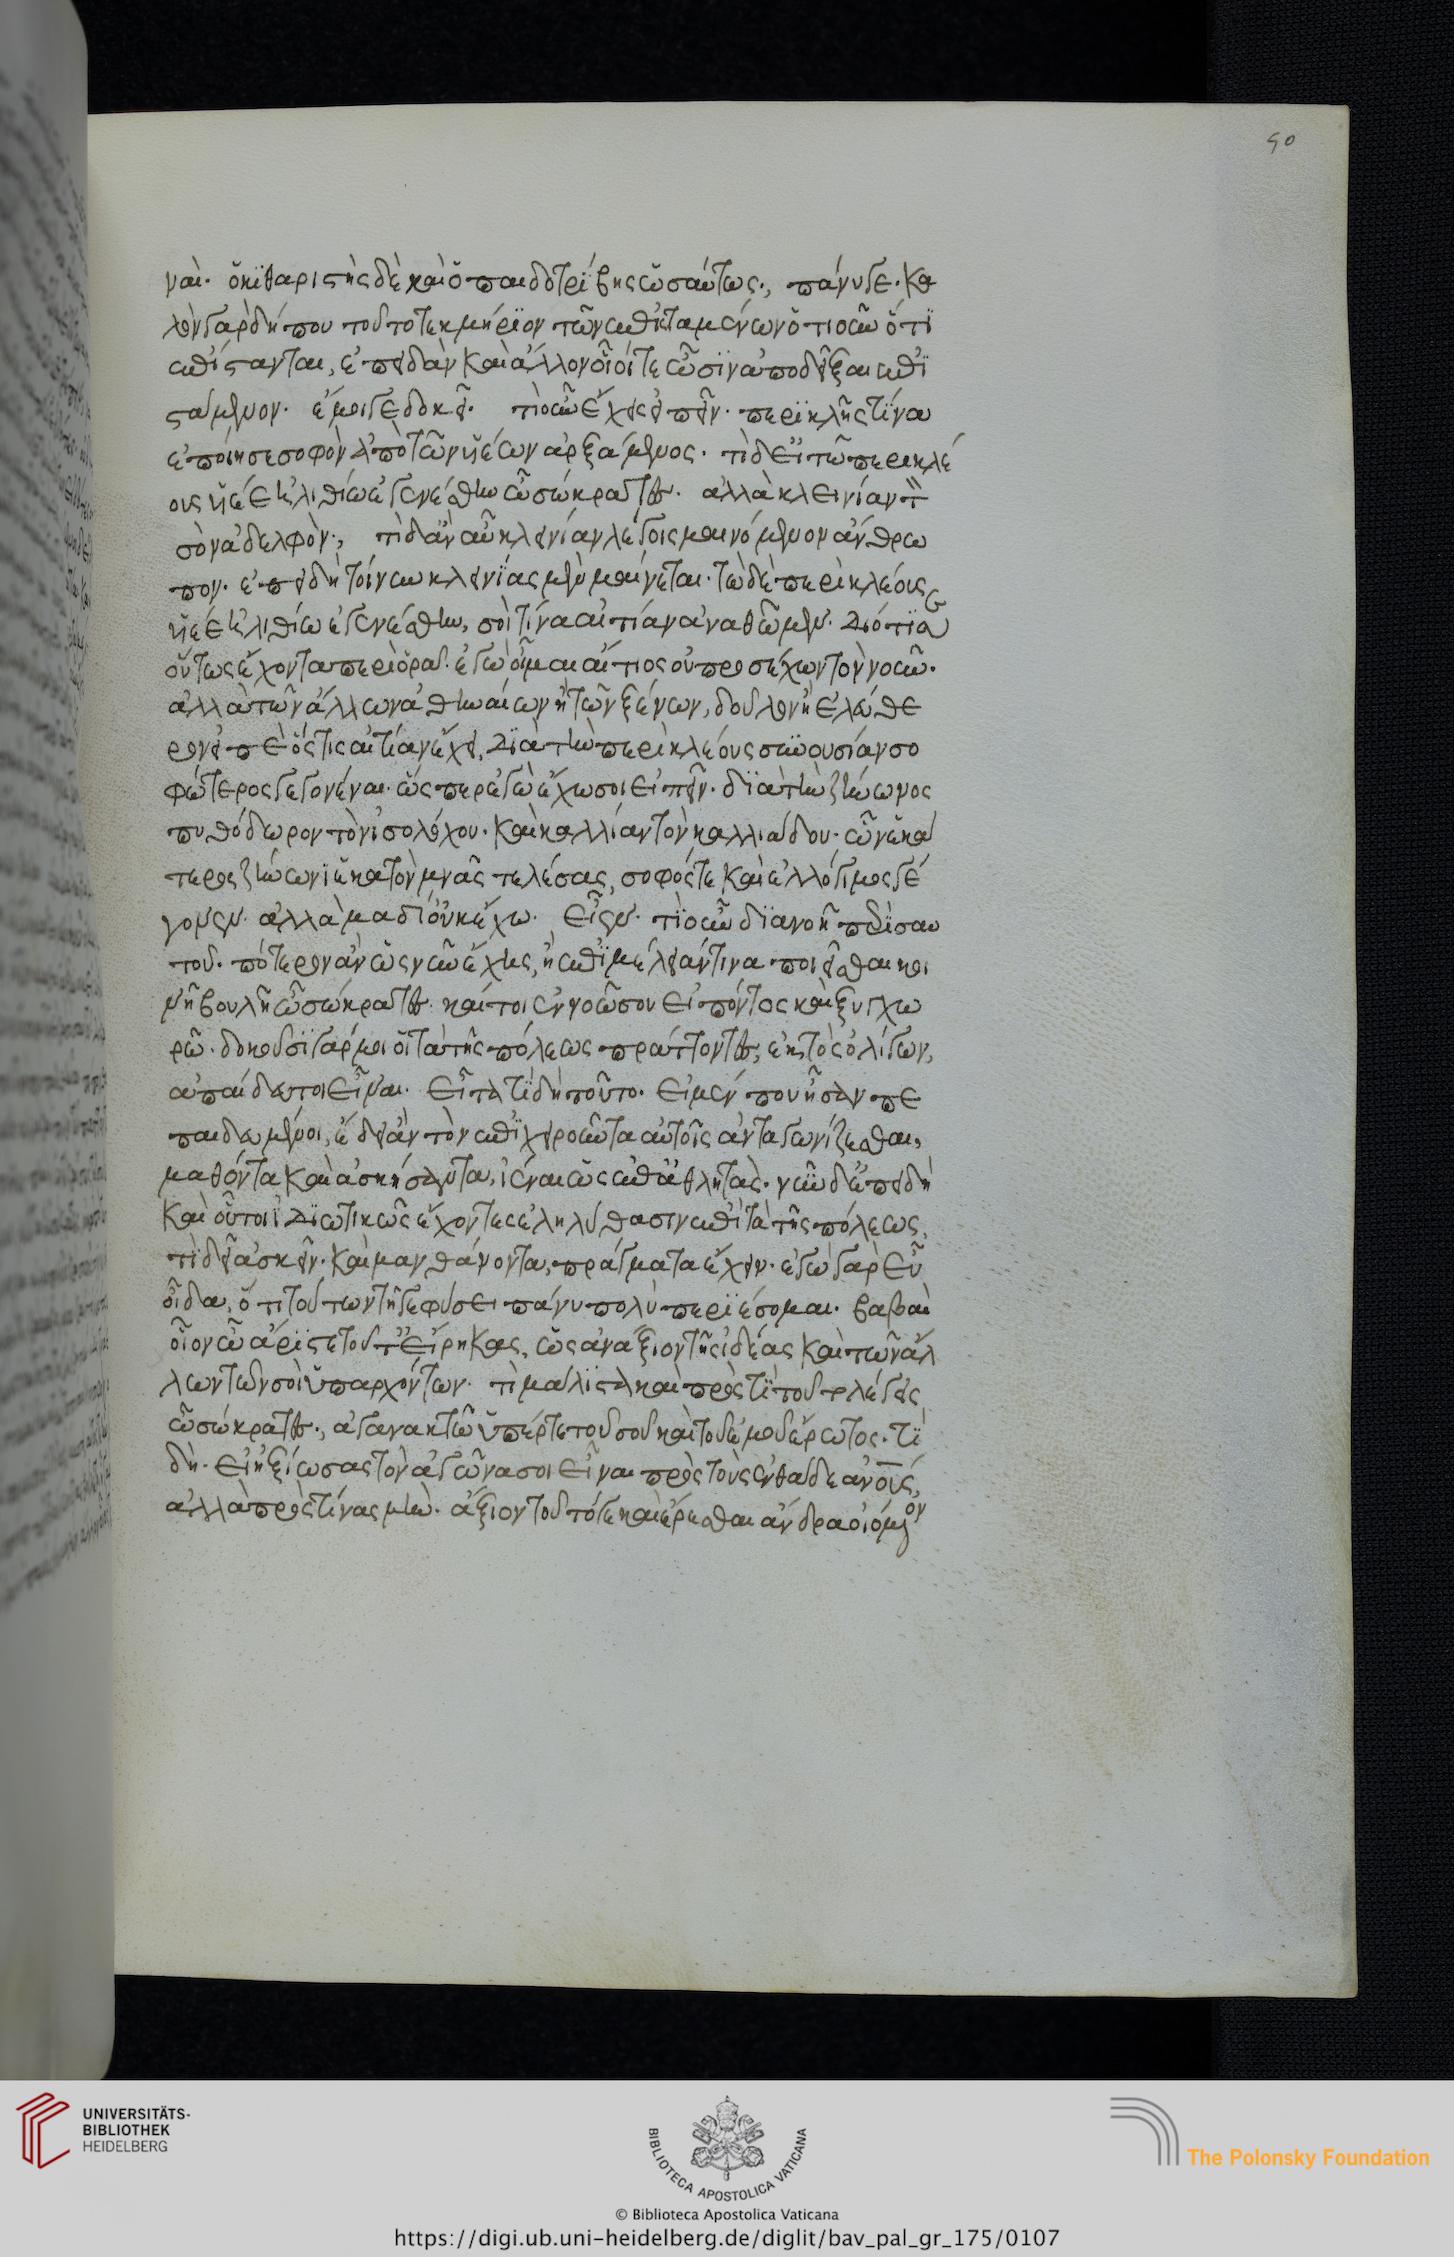 ναί. ὁ κιθαριστὴς δὲ καὶ ὁ παιδοτρίβης ὡσαύτως., πάνυ γε. κα
λὸν γὰρ δήπου τοῦτο τεκμήριον τῶν ἐπισταμένων ὁτιοῦν ὅτι
ἐπίστανται, ἐπειδὰν καὶ ἄλλον οἷοί τε ὦσιν ἀποδεῖξαι ἐπι
στάμενον. ἔμοιγε δοκεῖ. τί οὖν ἔχεις εἰπεῖν. περικλῆς τίνα
ἐποίησε σοφὸν ἀπὸ τῶν υἱέων ἀρξάμενος. τί δ εἰ τῶ περικλέ
ους υἱέε ἠλιθίω ἐγενέσθην ὦ σώκρατες. ἀλλὰ κλεινίαν τὸν
σὸν ἀδελφὸν., τί δ ἂν αὖ κλεινίαν λέγοις μαινόμενον ἄνθρω
πον. ἐπειδὴ τοίνυν κλεινίας μὲν μαίνεται. τὼ δὲ περικλέους
υἱέε ἠλιθίω ἐγενέσθην, σοὶ τίνα αἰτίαν ἀναθῶμεν. διότι σε
οὕτως ἔχοντα περιορᾶ. ἐγὼ οἶμαι αἴτιος οὐ προσέχων τὸν νοῦν.
ἀλλὰ τῶν ἄλλων ἀθηναίων ἢ τῶν ξένων, δοῦλον ἢ ἐλεύθε
ρον εἰπὲ ὅστις αἰτίαν ἔχει, διὰ τὴν περικλέους συνουσίαν σο
φώτερος γεγονέναι. ὥσπερ ἐγὼ ἔχω σοι εἰπεῖν. διὰ τὴν ζήνωνος
πυθόδωρον τὸν ἰσολόχου. καὶ καλλίαν τὸν καλλιάδου. ὧν ἑκά
τερος ζήνωνι ἑκατὸν μνᾶς τελέσας, σοφός τε καὶ ἐλλόγιμος γέ
γονεν. ἀλλὰ μὰ δί οὐκ ἔχω. εἶεν. τί οὖν διανοῆ περὶ σαυ
τοῦ. πότερον ἐᾶν ὡς νῦν ἔχεις, ἢ ἐπιμέλειάν τινα ποιεῖσθαι κοι
νῆ βουλῆ ὦ σώκρατες. καίτοι ἐννοῶ σου εἰπόντος καὶ ξυγχω
ρῶ. δοκοῦσι γάρ μοι οἱ τὰ τῆς πόλεως πράττοντες, ἐκτὸς ὀλίγων,
ἀπαίδευτοι εἶναι. εἶτα τί δὴ τοῦτο. εἰ μέν που ἦσαν πε
παιδευμένοι, ἔδει ἂν τὸν ἐπιχειροῦντα αὐτοῖς ἀνταγωνίζεσθαι,
μαθόντα καὶ ἀσκήσαντα, ἰέναι ὡς ἐπ ἀθλητάς. νῦν δ ἐπειδὴ
καὶ οὗτοι ἰδιωτικῶς ἔχοντες ἐληλύθασιν ἐπὶ τὰ τῆς πόλεως,
τί δεῖ ἀσκεῖν. καὶ μανθάνοντα, πράγματα ἔχειν. ἐγὼ γὰρ εὖ
οἶδα, ὅτι τούτων τῆ γε φύσει πάνυ πολὺ περιέσομαι. βαβαὶ
οἷον ὦ ἄριστε τοῦτ εἴρηκας, ὡς ἀνάξιον τῆς ἰδέας καὶ τῶν ἄλ
λων τῶν σοὶ ὑπαρχόντων. τί μάλιστα καὶ πρὸς τί τοῦτο λέγεις
ὦ σώκρατες., ἀγανακτῶ ὑπέρ τε τοῦ σοῦ καὶ τοῦ ἐμοῦ ἔρωτος. τί
δή. εἰ ἠξίωσας τὸν ἀγῶνα σοι εἶναι πρὸς τοὺς ἐνθάδε ἀνους,
ἀλλὰ πρὸς τίνας μήν. ἄξιον τοῦτό γε καὶ ἐρέσθαι ἄνδρα οἰόμενον
50
UNIVERSITÄTS-
BIBLIOTHEK
HEIDELBERG
BIBLIOTECA APOSTOLICA VATICANA
The Polonsky Foundation
© Biblioteca Apostolica Vaticana
https://digi.ub.uni-heidelberg.de/diglit/bav_pal_gr_175/0107